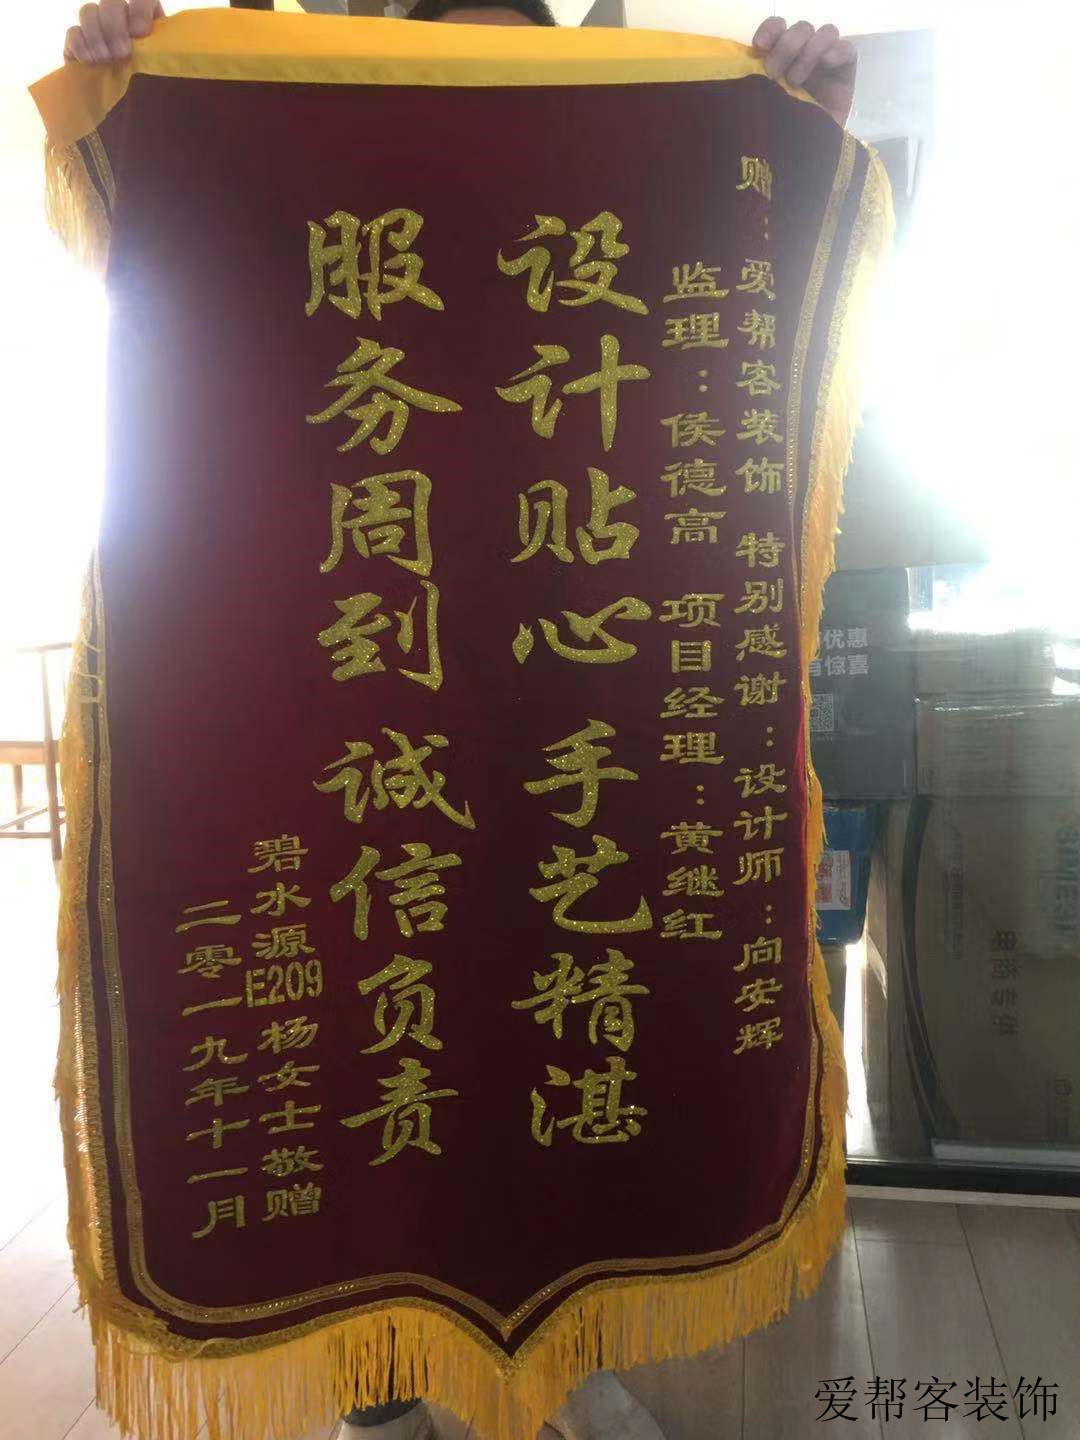 赠：爱帮客装饰 特别感谢：设计师：向安辉
监理：侯德高 项目经理：黄继红
设计贴心 手艺精湛
服务周到 诚信负责
碧水源E209杨女士敬赠
二零一九年十一月
优惠
有惊喜
爱帮客装饰